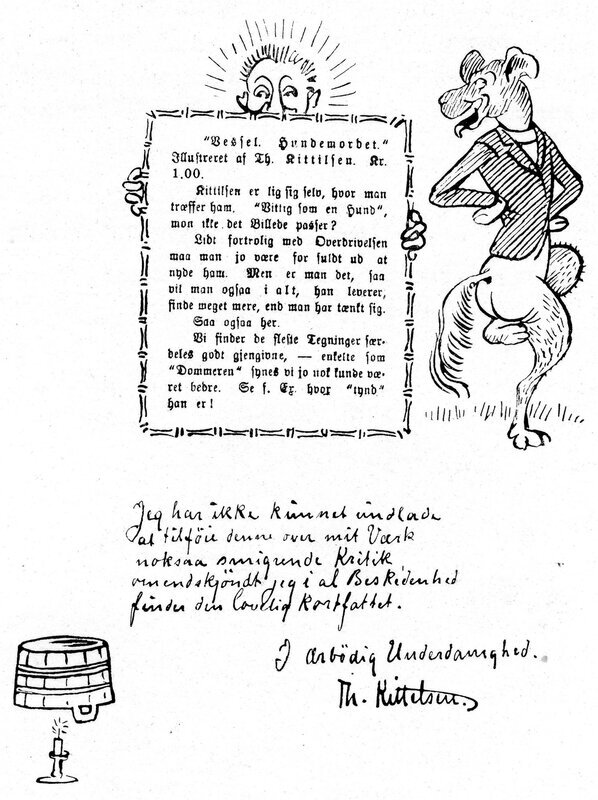 "Vessel. Hundemordet."
Illustreret af Th. Kittilsen. Kr.
1,00.
Kittilsen er lig sig selv, hvor man
træffer ham. "Vittig som en Hund",
mon ikke det Billede passer?
Lidt fortrolig med Overdrivelsen
maa man jo være for fuldt ud at
nyde ham. Men er man det, saa
vil man ogsaa i alt, han leverer,
finde meget mere, end man har tænkt sig.
Saa ogsaa her.
Vi finder de fleste Tegninger sær-
deles godt gjengivne, — enkelte som
"Dommeren" synes vi jo nok kunde væ-
ret bedre. Se f. Ex. hvor "tynd"
han er!
Jeg har ikke kunnet undlade
at tilföie denne over mit Værk
noksaa smigrende Kritik
omendskjöndt jeg i al Beskedenhed
finder den lovelig kortfattet.
I ærbödig Underdanighed.
Th. Kittelsen.